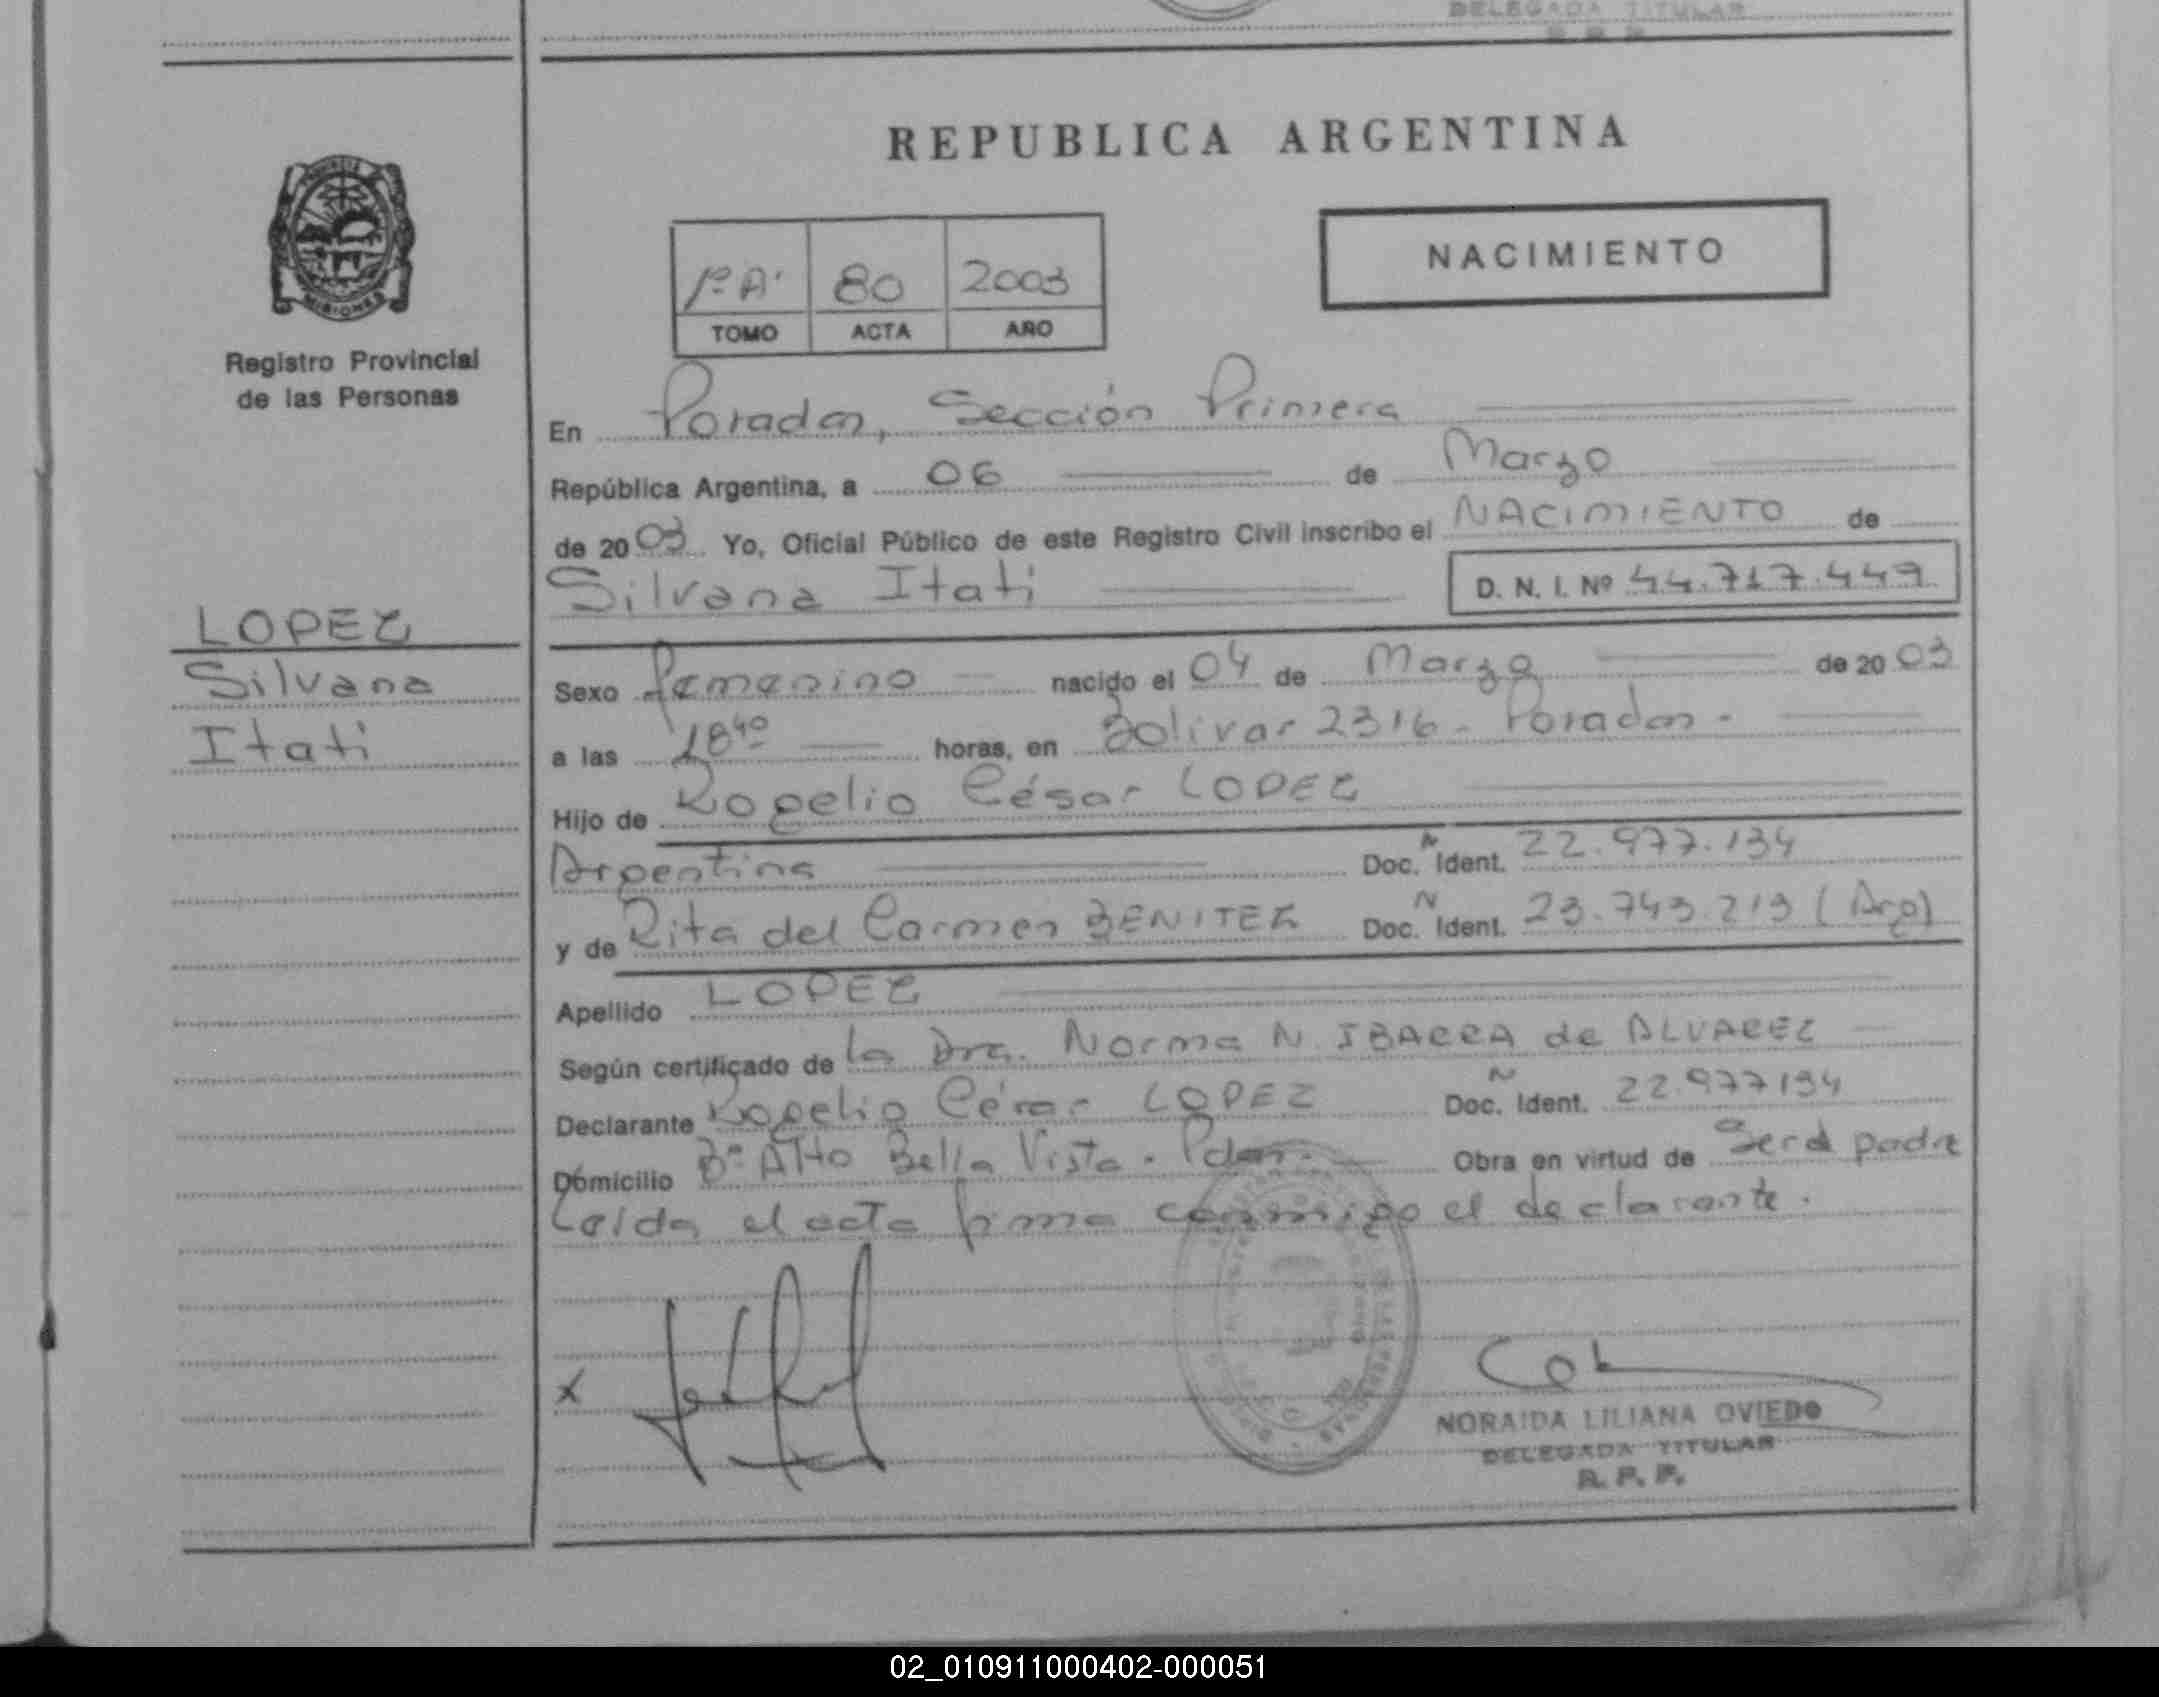 DELEGADA TITULAR
REPUBLICA ARGENTINA
PROVINCIA
MISIONES
Registro Provincial
de las Personas
NACIMIENTO
1º A. 80 2003
TOMO ACTA AÑO
En Posadas, Sección Primera
República Argentina, a 06 de Marzo
de 2003 Yo, Oficial Público de este Registro Civil inscribo el NACIMIENTO de
Silvana Itati D. N. I. Nº 44.717.449
LOPEZ
Silvana
Itati
Sexo femenino nacido el 04 de Marzo de 2003
a las 18 40 horas, en Bolivar 2316 - Posadas -
Hijo de Rogelio César LOPEZ
Argentina Doc. Ident. 22.977.134
y de Rita del Carmen BENITEZ Doc. Ident. 23.743.213 (Arg)
Apellido LOPEZ
Según certificado de la Dra. Norma N. IBARRA de ALVAREZ
Declarante Rogelio César LOPEZ Doc. Ident. 22.977134
Domicilio Bº Alto Bella Vista - Pdas. Obra en virtud de Ser el padre
Leida el acta firma conmigo el declarante.
X
NORAIDA LILIANA OVIEDO
DELEGADA TITULAR
R. P. P.
02_010911000402-000051